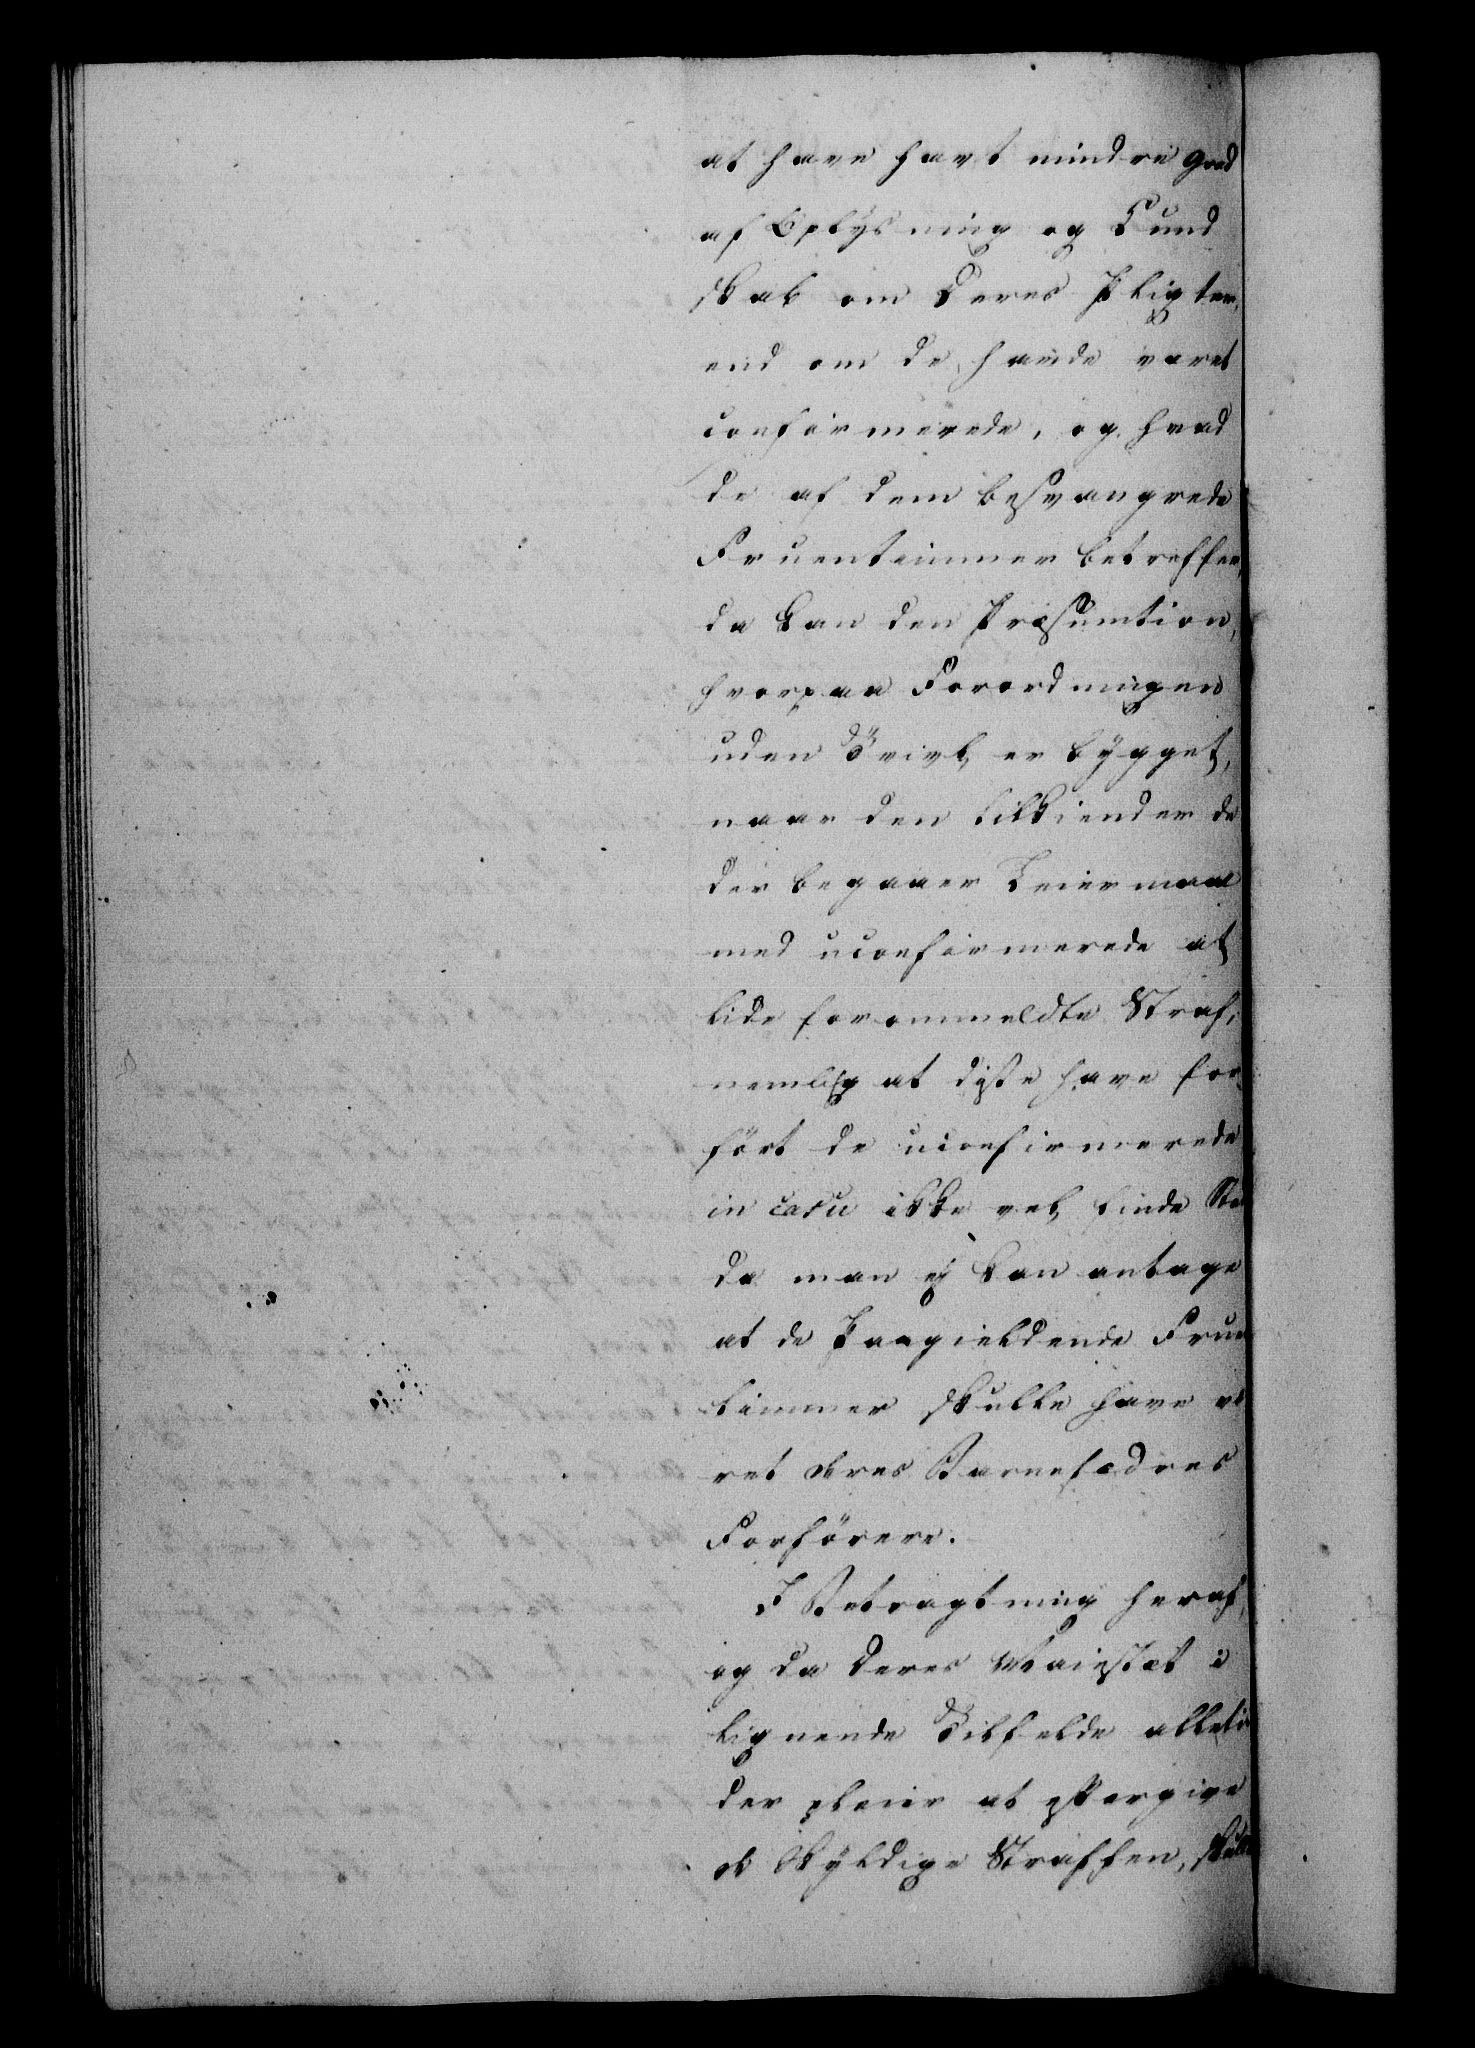 at have havt mindre Grad
af Oplysning og Kund
skab om deres Pligter,
end om de havde været
confirmerede, og hvad
de af dem besvangrede
Fruentimmer betreffer,
da kan den Præsumtion,
hvorpaa Forordningen
uden Tvivl er bygget,
naar den tilkiender de
der begaaer Leiermaal
med uconfirmerede at
lide forommeldte Straf,
nemlig at disse have for
ført de uconfirmerede
in casu ikke vel finde Sted
da man ej kan antage
at de Paagieldende Fruen
timmer skulle have væ
ret deres Barnefædres
Forförere.
I Betragtning heraf,
og da Deres Majestæt i
lignende Tilfelde alleti
der pleier at eftergive
de Skyldige Straffen, skulle